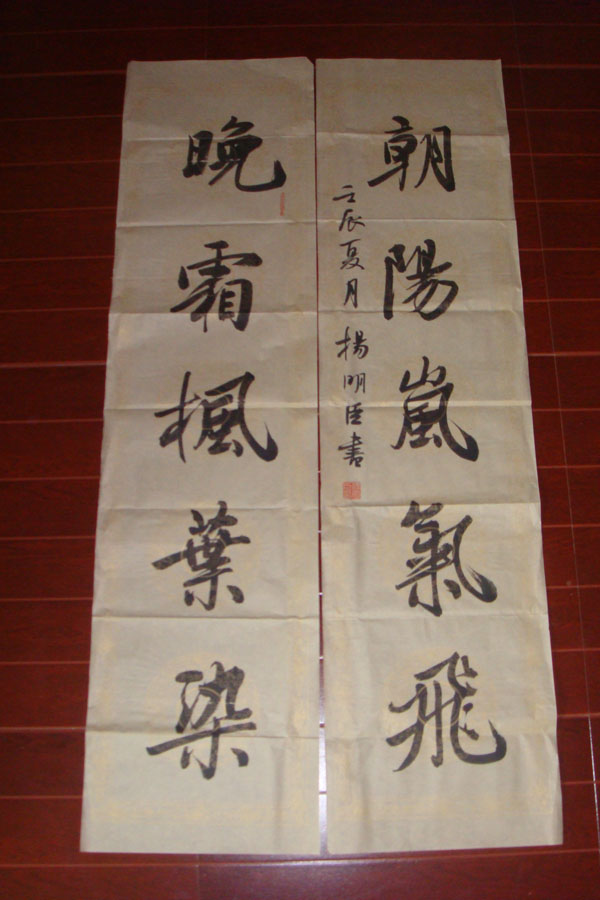 朝陽嵐氣飛
壬辰夏月 楊明臣書
晚霜楓葉染